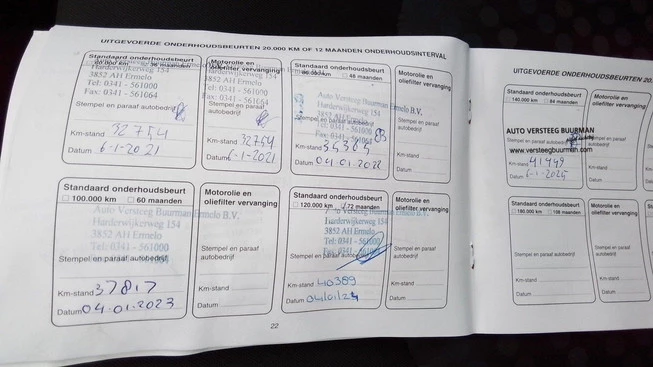 UITGEVOERDE ONDERHOUDSBEURTEN 20.000 KM OF 12 MAANDEN ONDERHOUDSINTERVAL
Standaard onderhoudsbeurt
Harderwijkerweg 154
3852 AH Ermelo
Tel: 0341 - 561000
Fax: 0341 - 561064
Stempel en paraaf autobedrijf
Km-stand 32754
Datum 6-1-2021
Motorolie en
oliefilter vervanging
Harderwijkerweg 154
3852 AH Ermelo
Tel: 0341 - 561000
Fax: 0341 - 561064
Stempel en paraaf
autobedrijf
Km-stand 32754
Datum 6-1-2021
Standaard onderhoudsbeurt
Auto Versteeg Buurman Ermelo B.V.
Harderwijkerweg 154
3852 AH Ermelo
Tel: 0341 - 561000
Stempel en paraaf autobedrijf
Km-stand 35365
Datum 04.01.2022
Motorolie en
oliefilter vervanging
Stempel en paraaf
autobedrijf
Km-stand
Datum
Standaard onderhoudsbeurt
100.000 km 60 maanden
Auto Versteeg Buurman Ermelo B.V.
Harderwijkerweg 154
3852 AH Ermelo
Tel: 0341 - 561000
Stempel en paraaf autobedrijf
Km-stand 37817
Datum 04.01.2023
Motorolie en
oliefilter vervanging
Stempel en paraaf
autobedrijf
Km-stand
Datum
Standaard onderhoudsbeurt
120.000 km 72 maanden
Versteeg Buurman Ermelo B.V.
Harderwijkerweg 154
3852 AH Ermelo
Tel: 0341 - 561000
Stempel en paraaf autobedrijf
Km-stand 40389
Datum 04/01/24
Motorolie en
oliefilter vervanging
Stempel en paraaf
autobedrijf
Km-stand
Datum
22
UITGEVOERDE ONDERHOUDSBEURTEN 20.
Standaard onderhoudsbeurt
140.000 km 84 maanden
AUTO VERSTEEG BUURMAN
www.versteegbuurman.com
Km-stand 41449
Datum 6-1-2025
Motorolie en
oliefilter vervanging
Stempel en paraaf
autobedrijf
Km-stand
Datum
Standaard onderhoudsbeurt
108 maanden
Stempel en paraaf autobedrijf
Km-stand
Datum
Motorolie en
oliefilter vervanging
Stempel en paraaf
autobedrijf
Km-stand
Datum